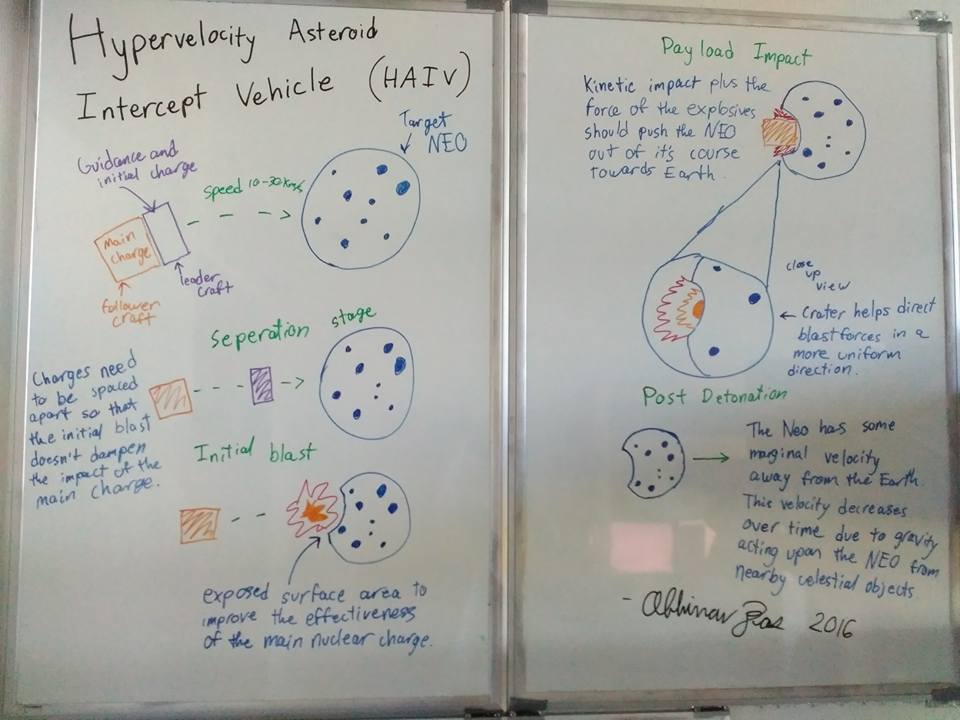 Hypervelocity Asteroid
Intercept Vehicle (HAIV)
Target
NEO
Guidance and
initial charge
Speed 10-30km/s
Main
charge
leader
craft
follower
craft
Seperation stage
Charges need
to be spaced
apart so that
the initial blast
doesn't dampen
the impact of the
main charge.
Initial blast
exposed surface area to
improve the effectiveness
of the main nuclear charge.
Payload Impact
Kinetic impact plus the
force of the explosives
should push the NEO
out of it's course
towards Earth.
close
up
view
← Crater helps direct
blast forces in a
more uniform
direction.
Post Detonation
The Neo has some
marginal velocity
away from the Earth.
This velocity decreases
over time due to gravity
acting upon the NEO from
nearby celestial objects
- Abhinav 2016